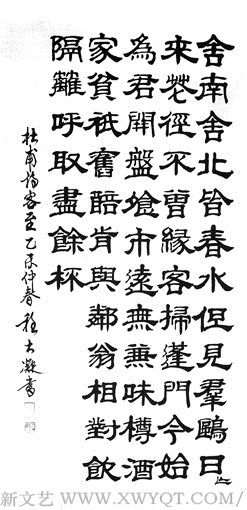 舍南舍北皆春水但見羣鷗日〻
來花徑不曾緣客掃蓬門今始
為君開盤飧市遠無兼味樽酒
家貧祇舊醅肯與鄰翁相對飲
隔籬呼取盡餘杯
杜甫詩客至乙未仲春 大 書
新文艺 / WWW.XWYQT.COM/